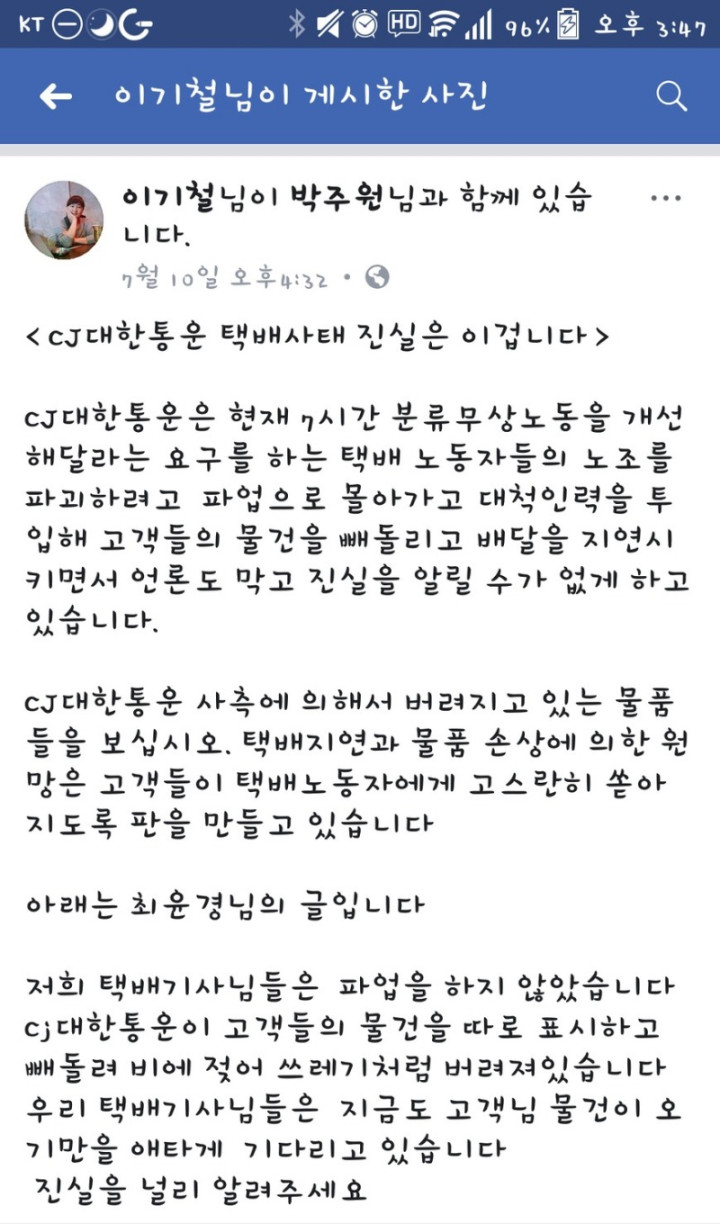 KT HD 96% 오후 3:47
이기철님이 게시한 사진
이기철님이 박주원님과 함께 있습
니다.
7월 10일 오후4:32 •
<CJ대한통운 택배사태 진실은 이겁니다>
CJ대한통운은 현재 7시간 분류무상노동을 개선
해달라는 요구를 하는 택배 노동자들의 노조를
파괴하려고 파업으로 몰아가고 대척인력을 투
입해 고객들의 물건을 빼돌리고 배달을 지연시
키면서 언론도 막고 진실을 알릴 수가 없게 하고
있습니다.
CJ대한통운 사측에 의해서 버려지고 있는 물품
들을 보십시오. 택배지연과 물품 손상에 의한 원
망은 고객들이 택배노동자에게 고스란히 쏟아
지도록 판을 만들고 있습니다
아래는 최윤경님의 글입니다
저희 택배기사님들은 파업을 하지 않았습니다
Cj대한통운이 고객들의 물건을 따로 표시하고
빼돌려 비에 젖어 쓰레기처럼 버려져있습니다
우리 택배기사님들은 지금도 고객님 물건이 오
기만을 애타게 기다리고 있습니다
진실을 널리 알려주세요